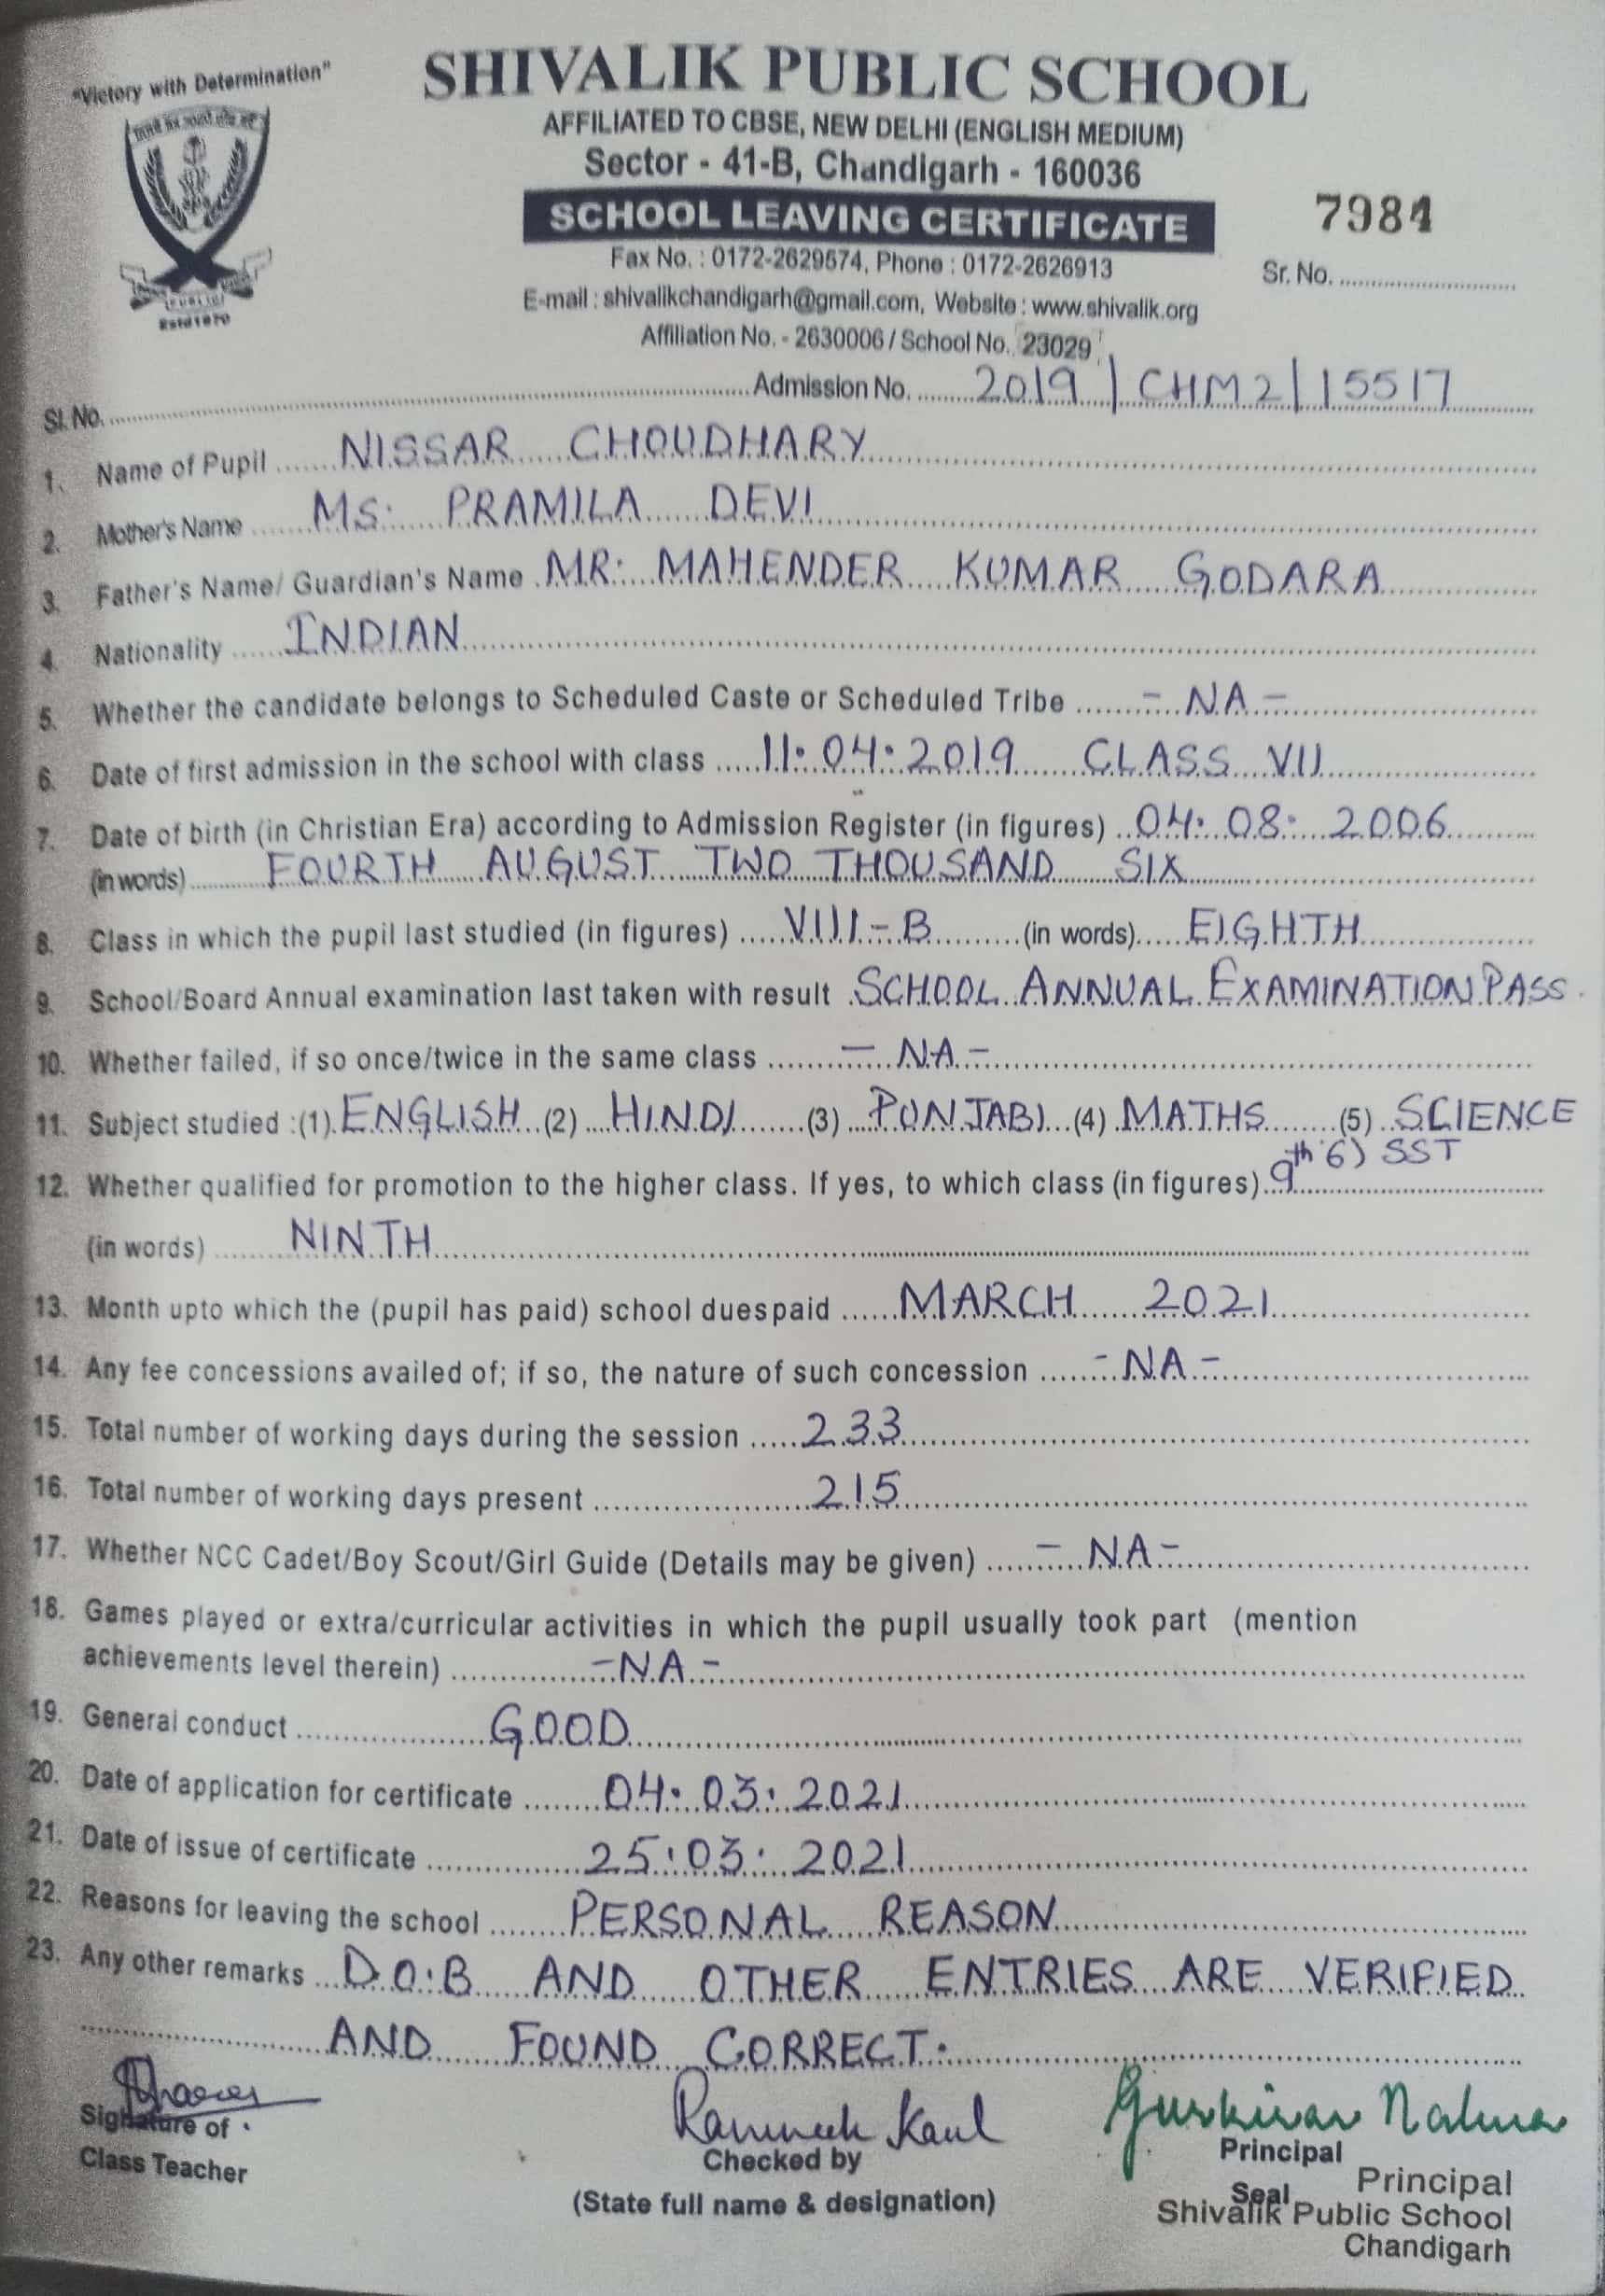 "Victory with Determination"
SHIVALIK PUBLIC SCHOOL
AFFILIATED TO CBSE, NEW DELHI (ENGLISH MEDIUM)
Sector - 41-B, Chandigarh - 160036
SCHOOL LEAVING CERTIFICATE
7984
Fax No. : 0172-2629574, Phone : 0172-2626913
Sr. No. ..............................
E-mail : shivalikchandigarh@gmail.com, Website : www.shivalik.org
PUBLIC
Estd 1970
Affiliation No. - 2630006 / School No. 23029
Sl. No. .............................. Admission No. 2019 | CHM2 | 15517
1. Name of Pupil NISSAR CHOUDHARY
2. Mother's Name MS. PRAMILA DEVI
3. Father's Name/ Guardian's Name MR. MAHENDER KUMAR GODARA
4. Nationality INDIAN
5. Whether the candidate belongs to Scheduled Caste or Scheduled Tribe - NA -
6. Date of first admission in the school with class 11.04.2019 CLASS VII
7. Date of birth (in Christian Era) according to Admission Register (in figures) 04.08.2006
(in words) FOURTH AUGUST TWO THOUSAND SIX
8. Class in which the pupil last studied (in figures) VIII-B (in words) EIGHTH
9. School/Board Annual examination last taken with result SCHOOL ANNUAL EXAMINATION PASS.
10. Whether failed, if so once/twice in the same class - NA -
11. Subject studied :(1) ENGLISH (2) HINDI (3) PUNJABI (4) MATHS (5) SCIENCE
6) SST
12. Whether qualified for promotion to the higher class. If yes, to which class (in figures) 9th
(in words) NINTH
13. Month upto which the (pupil has paid) school duespaid MARCH 2021
14. Any fee concessions availed of; if so, the nature of such concession - NA -
15. Total number of working days during the session 233
16. Total number of working days present 215
17. Whether NCC Cadet/Boy Scout/Girl Guide (Details may be given) - NA -
18. Games played or extra/curricular activities in which the pupil usually took part (mention
achievements level therein) - NA -
19. General conduct GOOD
20. Date of application for certificate 04.03.2021
21. Date of issue of certificate 25.03.2021
22. Reasons for leaving the school PERSONAL REASON
23. Any other remarks D.O.B AND OTHER ENTRIES ARE VERIFIED
AND FOUND CORRECT.
Kaul
Signature of
Class Teacher
Checked by
(State full name & designation)
Principal
Seal
Principal
Shivalik Public School
Chandigarh